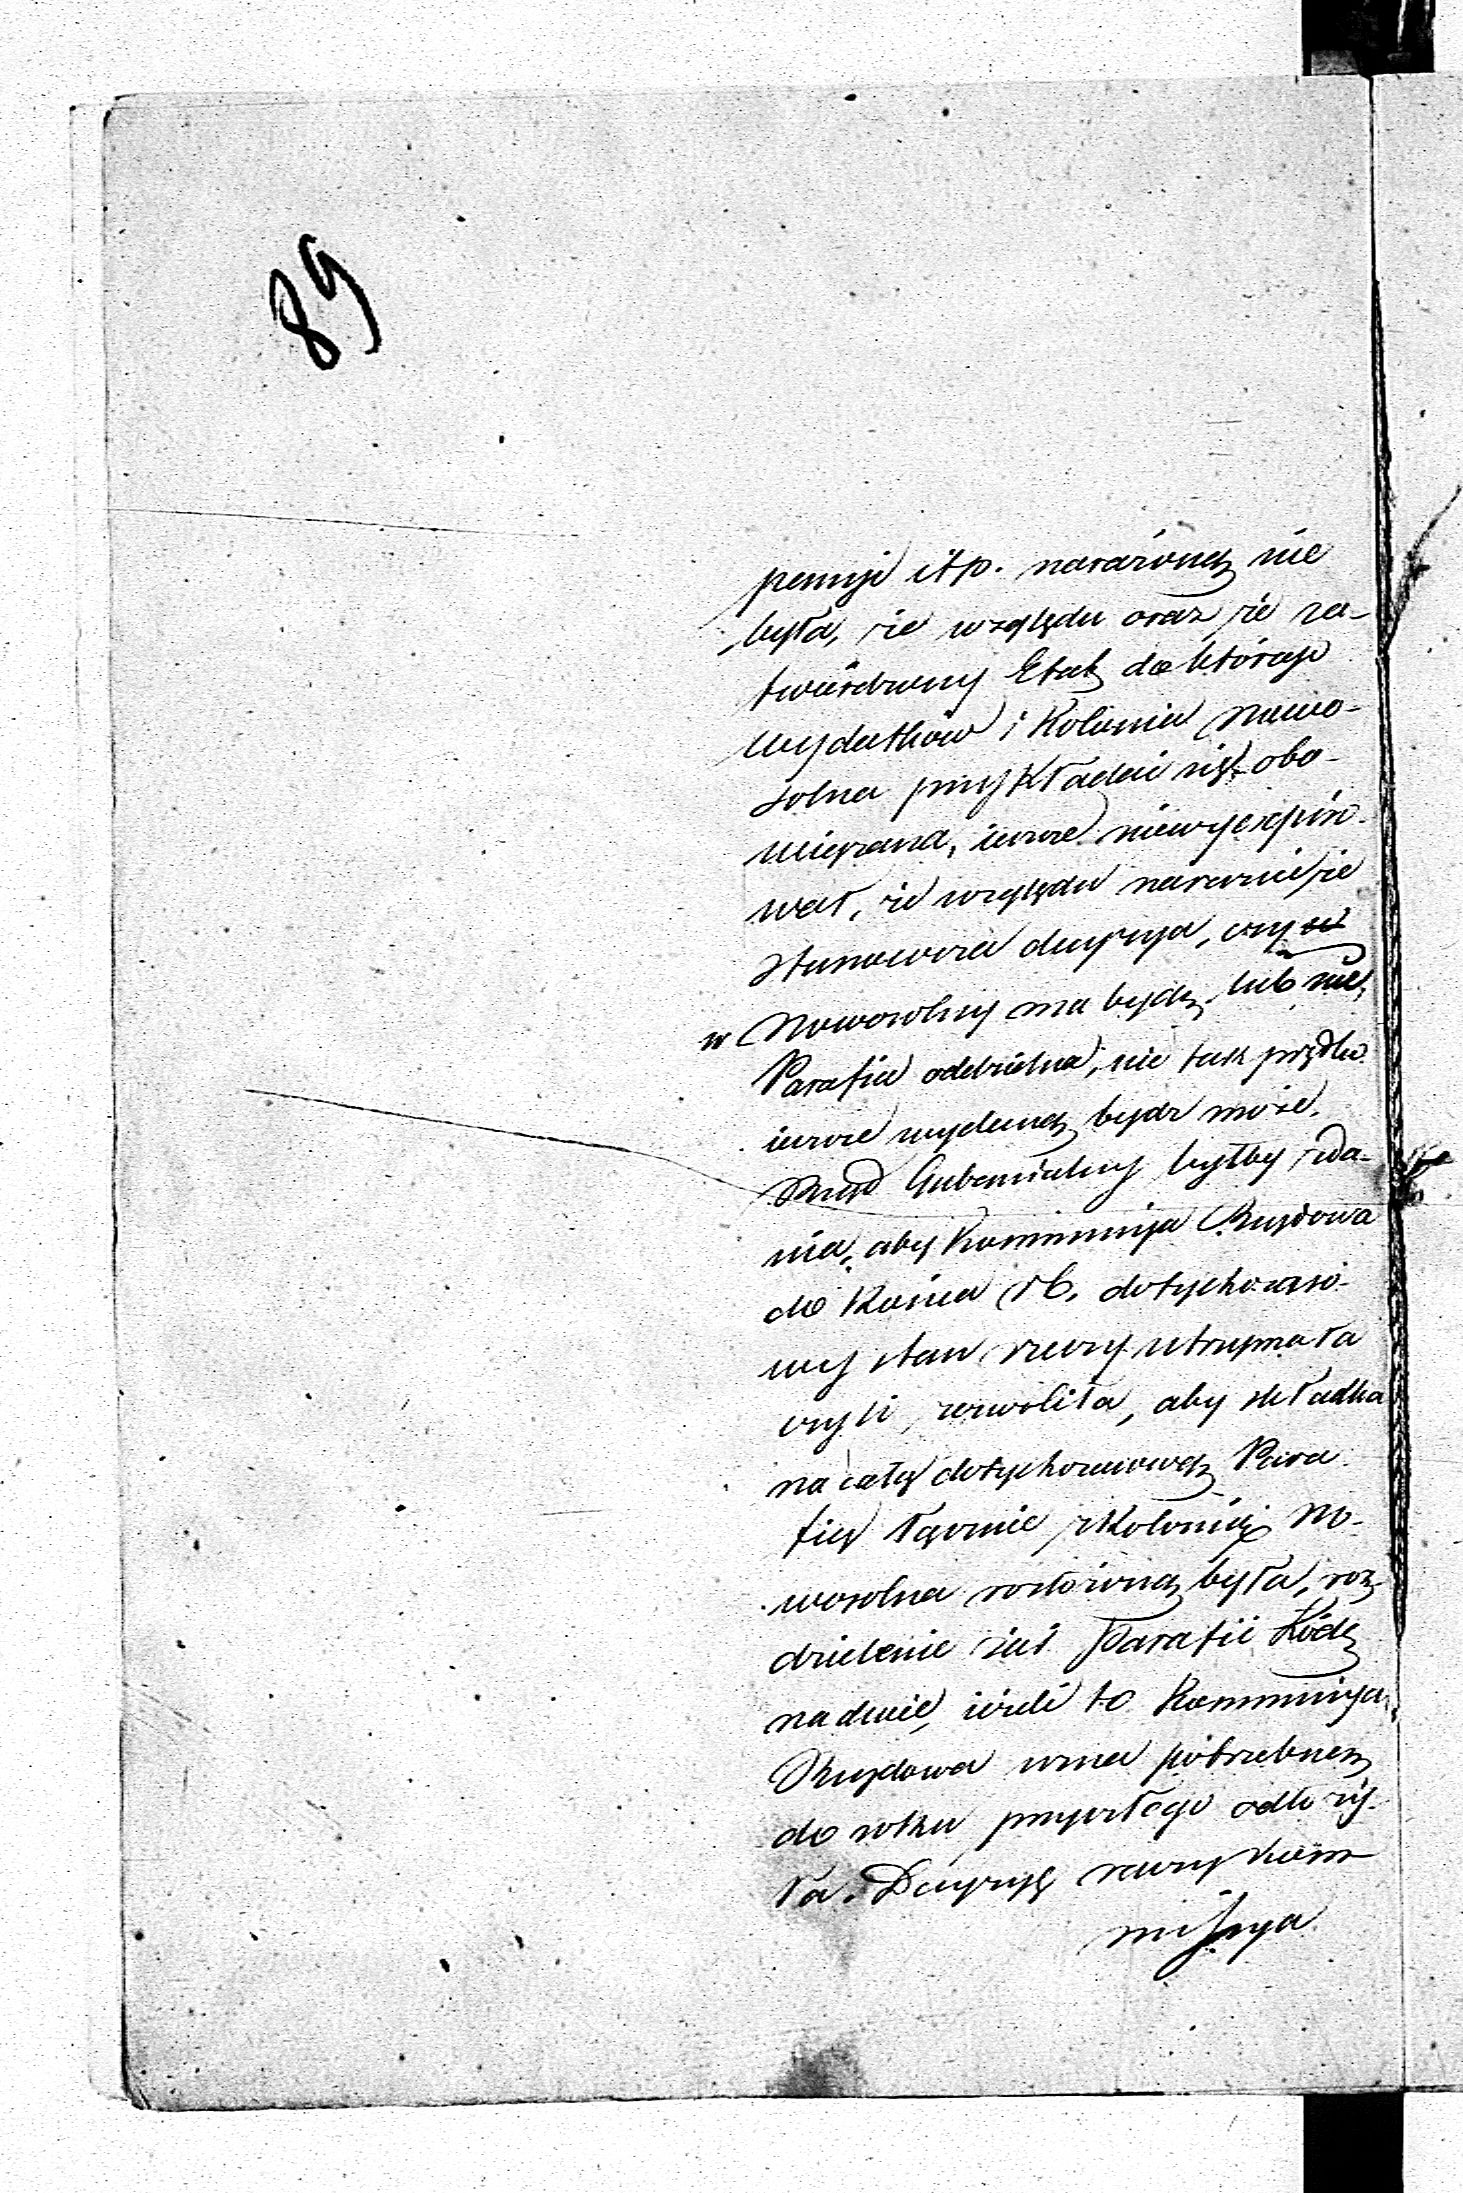 89
pensyi itp. narażoną nie
była, że względu oraz że za-
twierdzony Etat do którego
wydatków i Kolonia Nowo-
solna przykładać się obo-
wiązana, ieszcze niewyexpiro-
wał, że względu nareszcie że
stanowcza decyzya, czy w
w Nowosolny ma będz. lub nie,
Parafia oddzielna, nie tak prędko
ieszcze wydaną bydź może.
Rząd Gubernialny byłby zda-
nia, aby Kommissya Rządowa
do Końca r b. dotychczaso-
wy stan rzeczy utrzymała
czyli zezwoliła, aby składka
na całą dotychczasową Para-
fię łącznie z Kolonią No-
wosolna rozłożoną była, roz-
dzielenie zaś Parafii Łódź
na dwie, ieżeli to Kommissya
Rządowa uzna potrzebnem
do roku przyszłego odłoży-
ła. Decyzyę raczy Kom-
missya